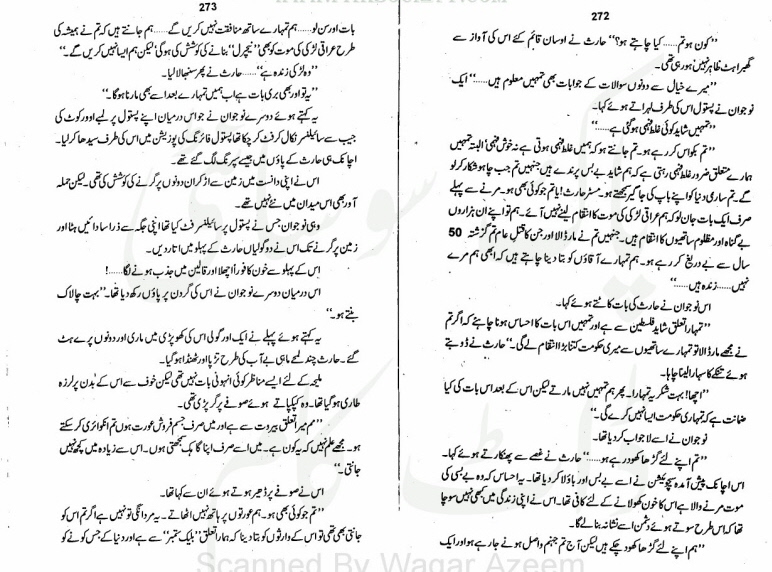 272
”کون ہو تم...... کیا چاہتے ہو؟“ حارث نے اوسان قائم کئے اس کی آواز سے
گھبراہٹ ظاہر نہیں ہو رہی تھی۔
”میرے خیال سے دونوں سوالات کے جوابات بھی تمہیں معلوم ہیں......“ ایک
نوجوان نے پستول اس کی طرف لہراتے ہوئے کہا۔
”تمہیں شاید کوئی غلط فہمی ہو گئی ہے......“
”تم بکواس کر رہے ہو۔ تم جانتے ہو کہ ہمیں غلط فہمی ہوتی ہے نہ خوش فہمی! البتہ تمہیں
ہمارے متعلق ضرور غلط فہمی رہتی ہے کہ ہم شاید بے بس پرندے ہیں جنہیں تم جب چاہو شکار کر لو
گے۔ تم ساری دنیا کو اپنے باپ کی جاگیر سمجھتے ہو۔ مسٹر حارث! یا تم جو کوئی بھی ہو۔ مرنے سے پہلے
صرف ایک بات جان لو کہ ہم عراقی لڑکی کی موت کا انتقام لینے نہیں آئے۔ ہم تو اپنے ان ہزاروں
بے گناہ اور مظلوم ساتھیوں کا انتقام ہیں۔ جنہیں تم نے مار ڈالا اور جن کا قتل عام تم گزشتہ 50
سال سے بے دریغ کر رہے ہو۔ ہم تمہارے آقاؤں کو بتا دینا چاہتے ہیں کہ ابھی ہم مرے
نہیں...... زندہ ہیں......“
اس نوجوان نے حارث کی بات کاٹتے ہوئے کہا۔
”تمہارا تعلق شاید فلسطین سے ہے اور تمہیں اس بات کا احساس ہونا چاہئے کہ اگر تم
نے مجھے مار ڈالا تو تمہارے ساتھیوں سے میری حکومت کتنا بڑا انتقام لے گی۔“ حارث نے ڈوبتے
ہوئے تنکے کا سہارا لینا چاہا۔
”اچھا! بہت شکریہ تمہارا۔ پھر ہم تمہیں نہیں مارتے لیکن اس کے بعد اس بات کی کیا
ضمانت ہے کہ تمہاری حکومت ایسا نہیں کرے گی۔“
نوجوان نے اسے لاجواب کر دیا تھا۔
”تم اپنے لئے گڑھا کھود رہے ہو......“ حارث نے غصے سے پھنکارتے ہوئے کہا۔
اس اچانک پیش آمدہ سچویشن نے اسے بے بس اور باؤلا کر دیا تھا۔ یہ احساس کہ وہ بے بسی کی
موت مرنے والا ہے اس کا خون کھولانے کے لئے کافی تھا۔ اس نے اپنی زندگی میں کبھی نہیں سوچا
تھا کہ اس طرح سوتے ہوئے دشمن اسے نشانہ بنا لے گا۔
”ہم اپنے لئے گڑھا کھود چکے ہیں لیکن آج تم جہنم واصل ہونے جا رہے ہو اور ایک
273
بات اور سن لو...... ہم تمہارے ساتھ منافقت نہیں کریں گے...... ہم جانتے ہیں کہ تم نے ہمیشہ کی
طرح عراقی لڑکی کی موت کو بھی ”نیچرل“ بنانے کی کوشش کی ہو گی لیکن ہم ایسا نہیں کریں گے۔“
”وہ لڑکی زندہ ہے“...... حارث نے پھر سنبھالا لیا۔
”یہ تو اور بھی بری بات ہے اب ہمیں تمہارے بعد اسے بھی مارنا ہو گا۔“
یہ کہتے ہوئے دوسرے نوجوان نے جو اس درمیان اپنے پستول پر لمبے اوور کوٹ کی
جیب سے سائیلنسر نکال کر فٹ کر چکا تھا پستول فائرنگ کی پوزیشن میں اس کی طرف سیدھا کر لیا۔
اچانک ہی حارث کے پاؤں میں جیسے سپرنگ لگ گئے تھے۔
اس نے اپنی دانست میں زمین سے اڑ کر ان دونوں پر گرنے کی کوشش کی تھی۔ لیکن حملہ
آور بھی اس میدان میں نئے نہیں تھے۔
وہی نوجوان جس نے پستول پر سائیلنسر فٹ کیا تھا اپنی جگہ سے ذرا سا دائیں ہٹا اور
زمین پر گرنے تک اس نے دو گولیاں حارث کے پہلو میں اتار دیں۔
اس کے پہلو سے خون کا فوارا اچھلا اور قالین میں جذب ہونے لگا......!
اس درمیان دوسرے نوجوان نے اس کی گردن پر پاؤں رکھ دیا تھا۔ ”بہت چالاک
بنتے ہو۔“
یہ کہتے ہوئے پہلے نے ایک اور گولی اس کی کھوپڑی میں ماری اور دونوں پرے ہٹ
گئے۔ حارث چند لمحے ماہی بے آب کی طرح تڑپا اور ٹھنڈا ہو گیا۔
ملیحہ کے لئے ایسے مناظر کوئی انہونی بات نہیں تھی لیکن خوف سے اس کے بدن پر لرزہ
طاری ہو گیا تھا۔ وہ کپکپاتے ہوئے صوفے پر گر پڑی تھی۔
”مم میرا تعلق بیروت سے ہے اور میں صرف جسم فروش عورت ہوں تم انکوائری کر سکتے
ہو۔ مجھے علم نہیں کہ یہ کون ہے۔ میں اسے صرف اپنا گاہک سمجھتی ہوں۔ اس سے زیادہ میں کچھ نہیں
جانتی۔“
اس نے صوفے پر ڈھیر ہوتے ہوئے ان سے کہا تھا۔
”تم جو کوئی بھی ہو۔ ہم عورتوں پر ہاتھ نہیں اٹھاتے۔ یہ مردانگی تو نہیں ہے اگر تم اس کو
جانتی بھی تھی تو اس کے وارثوں کو بتا دینا کہ ہمارا تعلق ”بلیک ستمبر“ سے ہے اور دنیا کے جس کونے کو
Scanned By Waqar Azeem